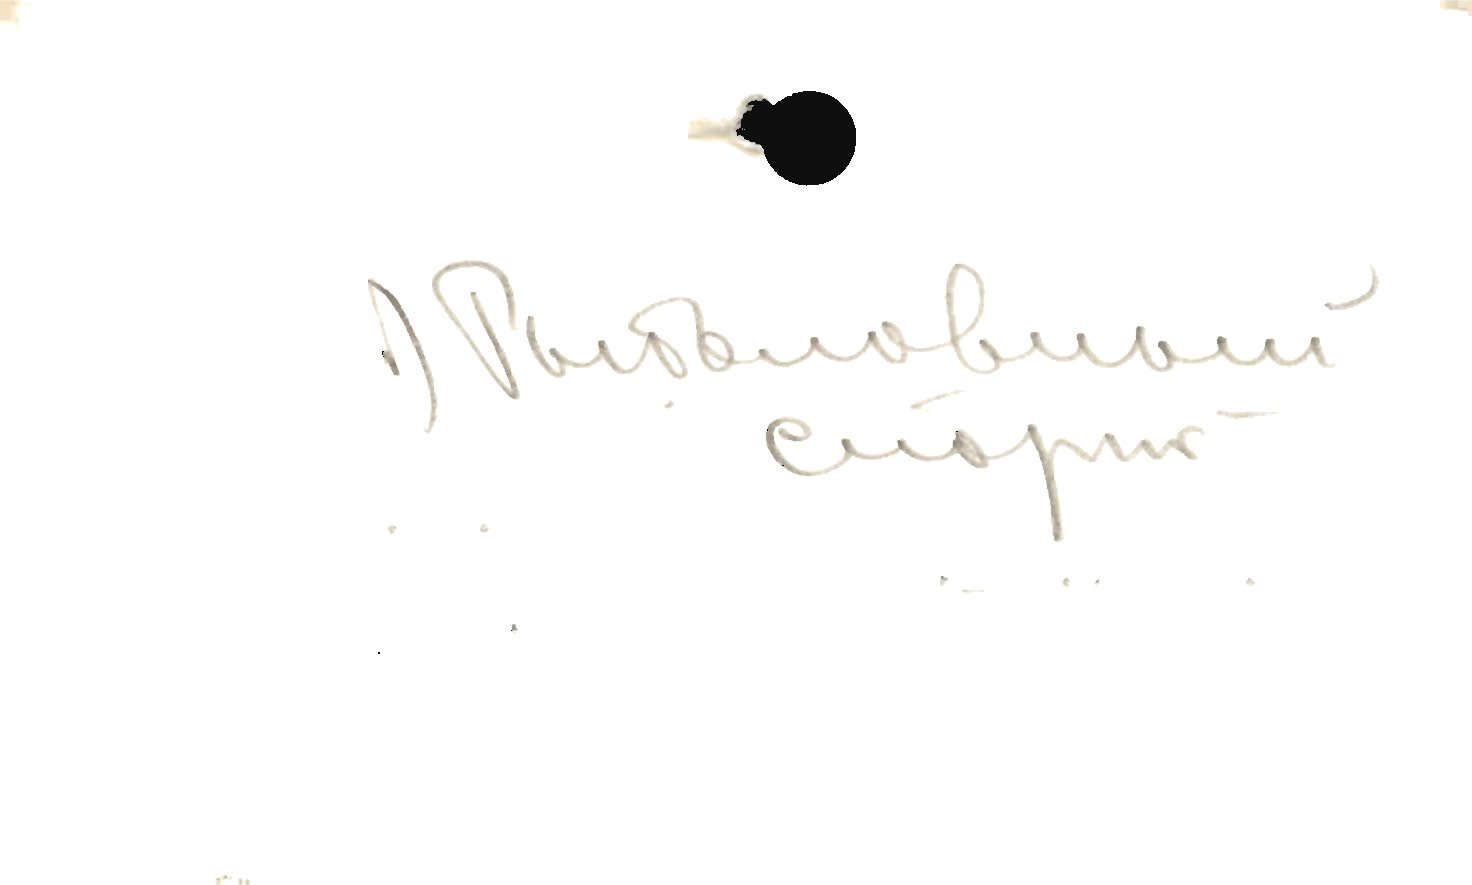 ) Рыболовный
сторик